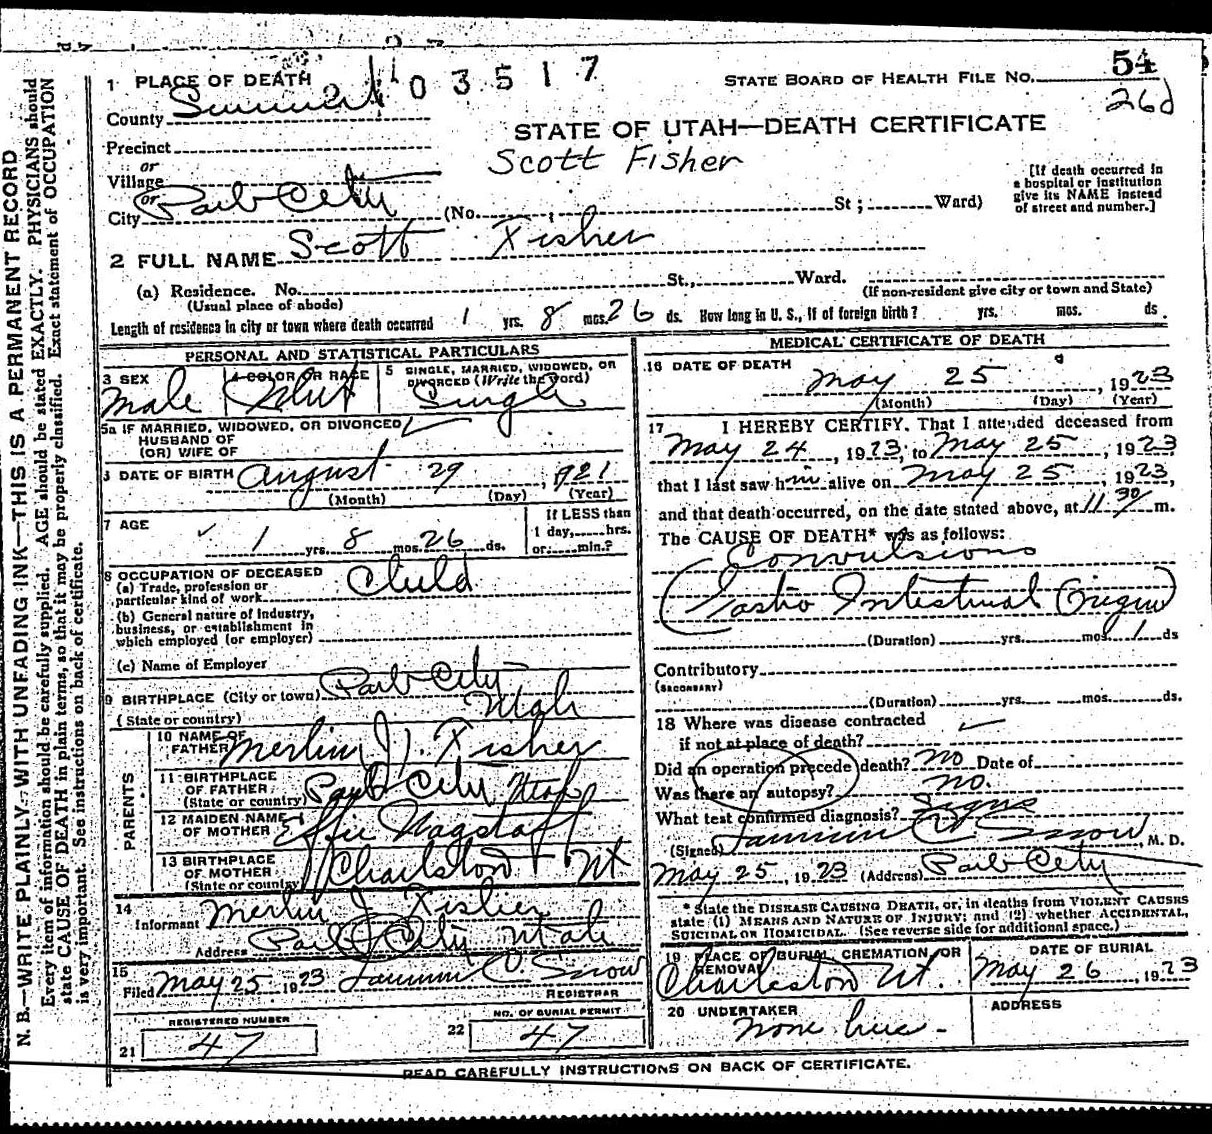 1 PLACE OF DEATH
103517
STATE BOARD OF HEALTH FILE NO. 54
County Summit
26d
STATE OF UTAH—DEATH CERTIFICATE
Precinct
Scott Fisher
or
Village
or
City Park City (No. St; Ward)
[If death occurred in
a hospital or institution
give its NAME instead
of street and number.]
2 FULL NAME Scott Fisher
(a) Residence. No. St., Ward.
(Usual place of abode)
(If non-resident give city or town and State)
Length of residence in city or town where death occurred 1 yrs. 8 mos. 26 ds. How long in U. S., if of foreign birth? yrs. mos. ds.
PERSONAL AND STATISTICAL PARTICULARS
3 SEX
Male
4 COLOR OR RACE
White
5 SINGLE, MARRIED, WIDOWED, OR
DIVORCED (Write the word)
Single
5a IF MARRIED, WIDOWED, OR DIVORCED
HUSBAND OF
(OR) WIFE OF
6 DATE OF BIRTH August 29, 1921
(Month) (Day) (Year)
7 AGE
1 yrs. 8 mos. 26 ds.
If LESS than
1 day, hrs.
or min.?
8 OCCUPATION OF DECEASED
(a) Trade, profession or
particular kind of work Child
(b) General nature of industry,
business, or establishment in
which employed (or employer)
(c) Name of Employer
9 BIRTHPLACE (City or town) Park City
(State or country) Utah
PARENTS
10 NAME OF
FATHER Merlin J. Fisher
11 BIRTHPLACE
OF FATHER
(State or country) Park City Utah
12 MAIDEN NAME
OF MOTHER Effie Wagstaff
13 BIRTHPLACE
OF MOTHER
(State or country) Charleston Ut
14
Informant Merlin J. Fisher
Address Park City Utah
15
Filed May 25 1923 C. Snow
REGISTRAR
REGISTERED NUMBER
21 47
NO. OF BURIAL PERMIT
22 47
MEDICAL CERTIFICATE OF DEATH
16 DATE OF DEATH
May 25, 1923
(Month) (Day) (Year)
17 I HEREBY CERTIFY, That I attended deceased from
May 24, 1923, to May 25, 1923
that I last saw him alive on May 25, 1923,
and that death occurred, on the date stated above, at 11 30 m.
The CAUSE OF DEATH* was as follows:
Convulsions
(Gastro Intestinal Origin)
(Duration) yrs. mos. 1 ds
Contributory
(SECONDARY)
(Duration) yrs. mos. ds.
18 Where was disease contracted
if not at place of death?
Did an operation precede death? No Date of
Was there an autopsy? no.
What test confirmed diagnosis? Signs
(Signed) C. Snow, M. D.
May 25, 1923 (Address) Park City
* State the DISEASE CAUSING DEATH, or, in deaths from VIOLENT CAUSES
state (1) MEANS AND NATURE OF INJURY; and (2) whether ACCIDENTAL,
SUICIDAL OR HOMICIDAL. (See reverse side for additional space.)
19 PLACE OF BURIAL, CREMATION, OR
REMOVAL
Charleston Ut.
DATE OF BURIAL
May 26, 1923
20 UNDERTAKER
none here -
ADDRESS
READ CAREFULLY INSTRUCTIONS ON BACK OF CERTIFICATE.
N. B.—WRITE PLAINLY, WITH UNFADING INK—THIS IS A PERMANENT RECORD
Every item of information should be carefully supplied. AGE should be stated EXACTLY. PHYSICIANS should
state CAUSE OF DEATH in plain terms, so that it may be properly classified. Exact statement of OCCUPATION
is very important. See instructions on back of certificate.